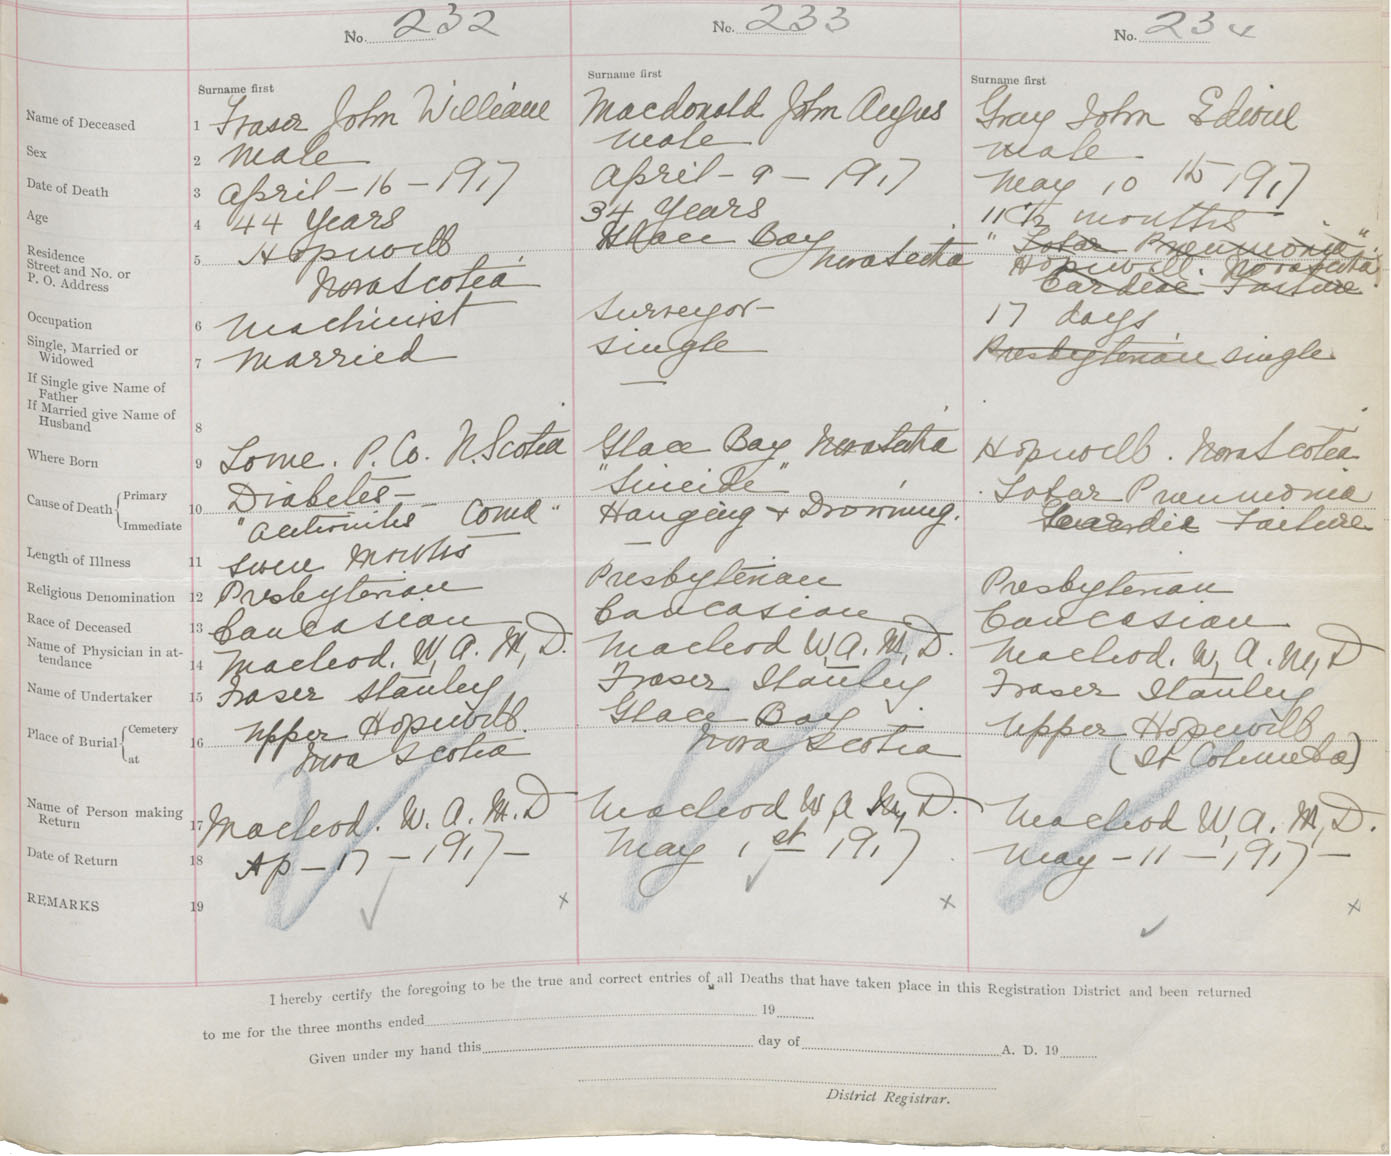 No. 232
No. 233
No. 234
Surname first
Surname first
Surname first
Name of Deceased 1 Fraser John William
Macdonald John Angus
Gray John Edwin
Sex 2 male
male
male
Date of Death 3 April – 16 – 1917
April – 9 – 1917
May 10 th 1917
Age 4 44 Years
34 Years
11 1/2 months
Residence
Street and No. or
P. O. Address
5 Hopewell
Nova Scotia
Glace Bay
Nova Scotia
" Lobar Pneumonia "
Hopewell. Nova Scotia
Cardiac Failure
Occupation 6 Machinist
Surveyor –
17 days
Single, Married or
Widowed
7 Married
Single
Presbyterian single
If Single give Name of
Father
If Married give Name of
Husband
8
Where Born 9 Lorne. P. Co. N. Scotia
Glace Bay Nova Scotia
Hopewell. Nova Scotia
Cause of Death { Primary
Immediate
10 Diabetes –
" Coma "
"Suicide"
Hanging + Drowning.
Lobar Pneumonia
Cardiac Failure
Length of Illness 11 months
—
Religious Denomination 12 Presbyterian
Presbyterian
Presbyterian
Race of Deceased 13 Caucasian
Caucasian
Caucasian
Name of Physician in at-
tendance
14 Macleod. W. A. M. D.
Macleod W. A. M. D.
Macleod. W. A. M. D
Name of Undertaker 15 Fraser Stanley
Fraser Stanley
Fraser Stanley
Place of Burial { Cemetery
at
16 Upper Hopewell
Nova Scotia
Glace Bay
Nova Scotia
Upper Hopewell
(St Columba)
Name of Person making
Return
17 Macleod. W. A. M. D
Macleod W. A. M. D.
Macleod W. A. M. D.
Date of Return 18 Ap – 17 – 1917 –
May 1st 1917
May – 11 – 1917 –
REMARKS 19
x
x
x
I hereby certify the foregoing to be the true and correct entries of all Deaths that have taken place in this Registration District and been returned
to me for the three months ended 19
Given under my hand this day of A. D. 19
District Registrar.